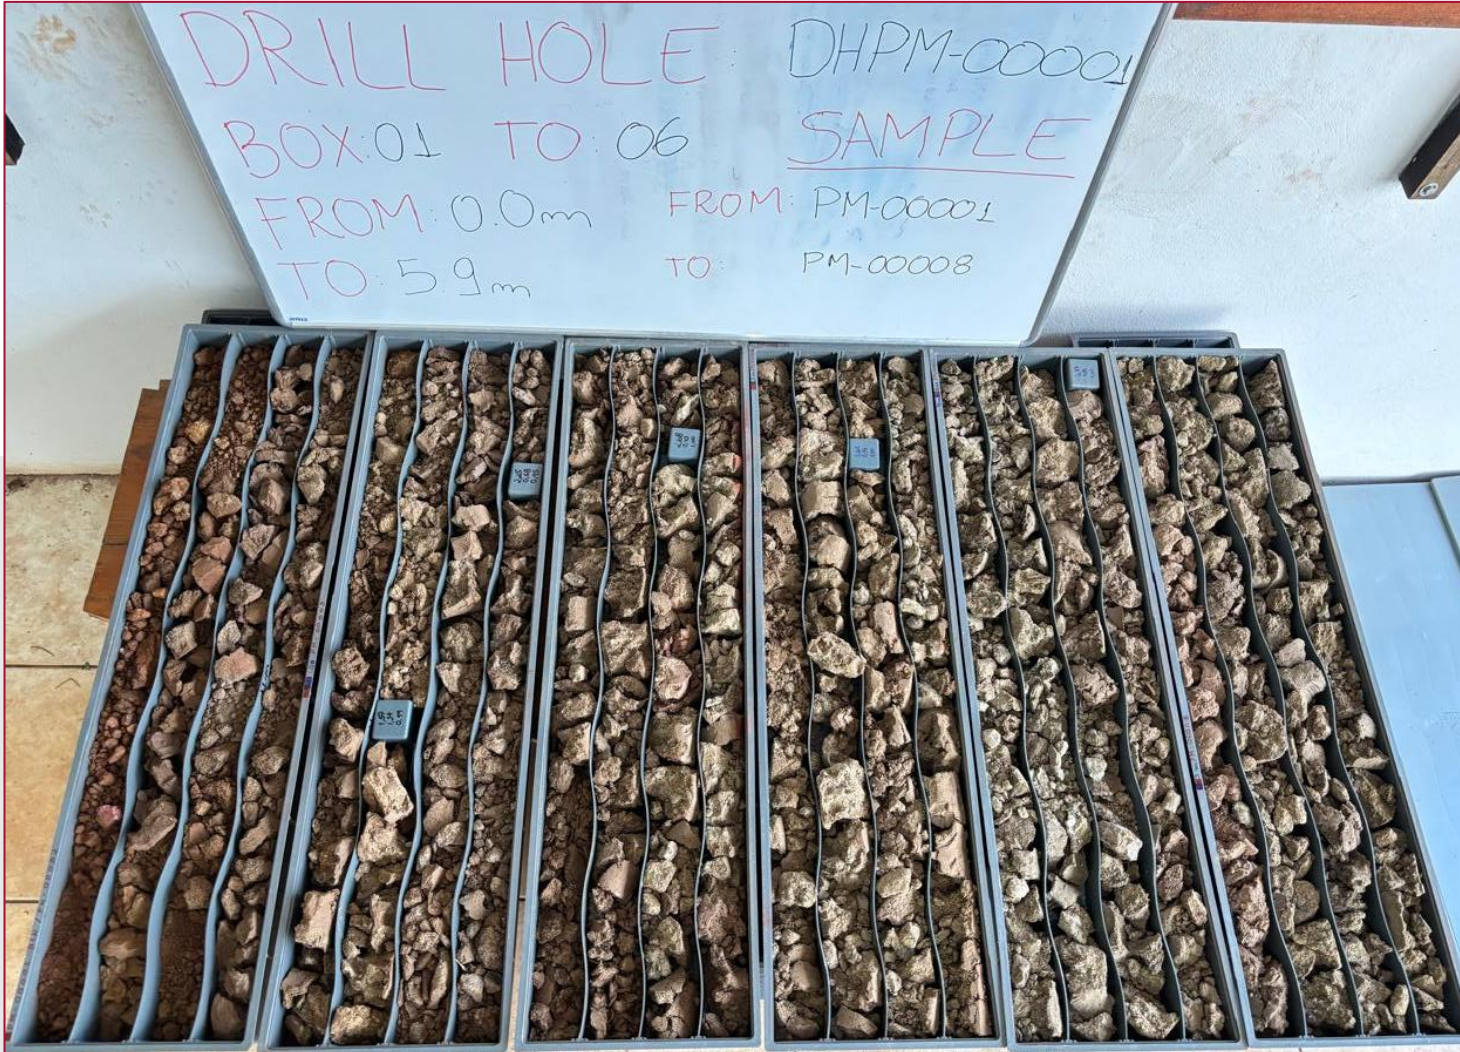 DRILL HOLE: DHPM-00001
BOX: 01 TO: 06 SAMPLE
FROM: 0.0m FROM: PM-00001
TO: 5.9m TO: PM-00008